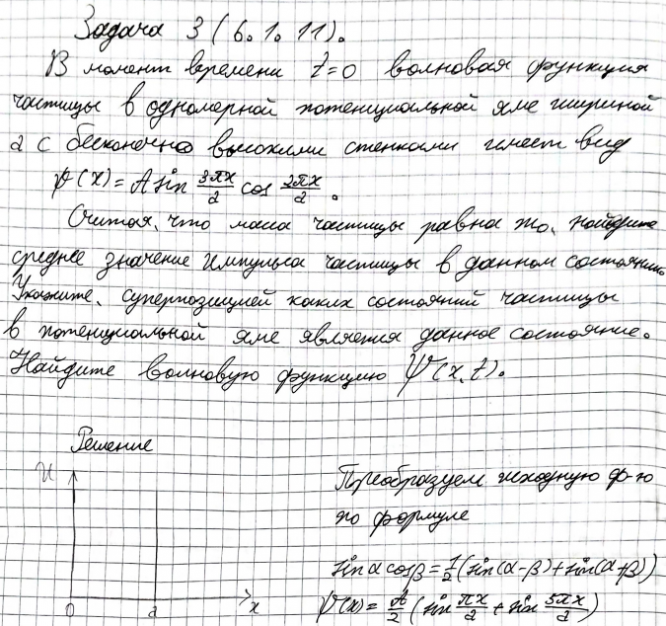 Задача 3 (6.1.11).
В момент времени t=0 волновая функция
частицы в одномерной потенциальной яме шириной
a с бесконечно высокими стенками имеет вид
ψ(x) = A sin 3πx/a cos 2πx/a .
Считая, что масса частицы равна m₀, найдите
среднее значение импульса частицы в данном состоянии.
Укажите, суперпозицией каких состояний частицы
в потенциальной яме является данное состояние.
Найдите волновую функцию Ψ(x,t).
Решение
U
Преобразуем исходную ф-ю
по формуле
sinα cosβ = 1/2 (sin(α-β) + sin(α+β))
0 a x
ψ(x) = A/2 (sin πx/a + sin 5πx/a)